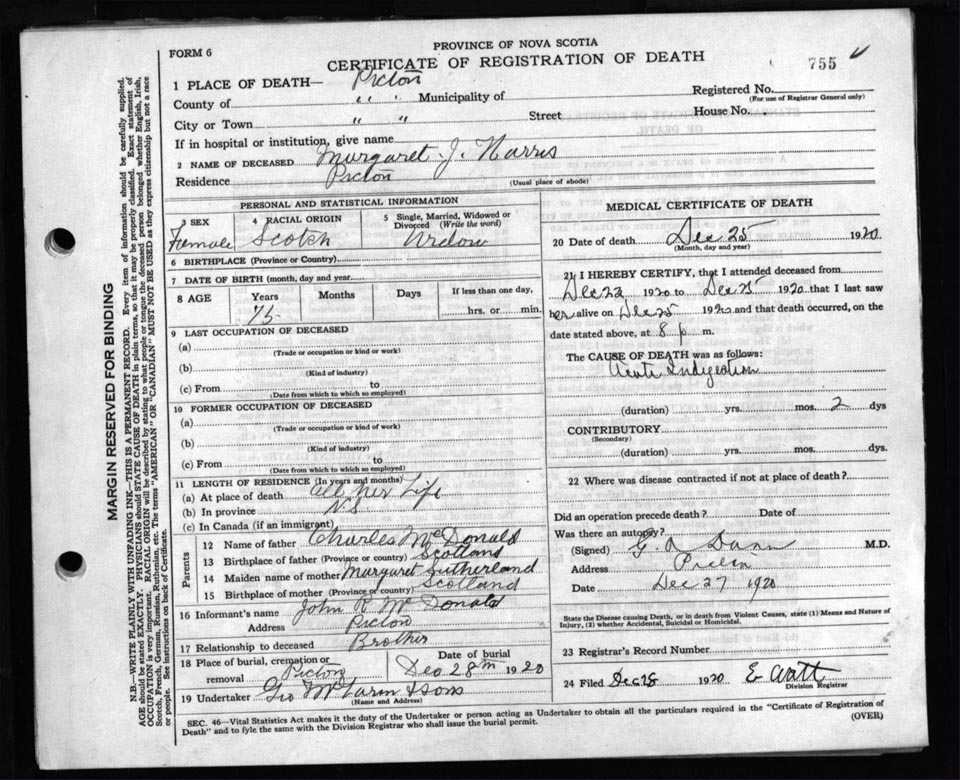 PROVINCE OF NOVA SCOTIA
FORM 6
CERTIFICATE OF REGISTRATION OF DEATH
755
1 PLACE OF DEATH— Pictou
Registered No.
(For use of Registrar General only)
County of " " Municipality of
City or Town " " Street House No.
If in hospital or institution, give name
2 NAME OF DECEASED Margaret J. Harris
Residence Pictou
(Usual place of abode)
PERSONAL AND STATISTICAL INFORMATION
3 SEX Female
4 RACIAL ORIGIN Scotch
5 Single, Married, Widowed or Divorced (Write the word) Widow
6 BIRTHPLACE (Province or Country)
7 DATE OF BIRTH (month, day and year)
8 AGE Years 75 Months Days If less than one day, hrs. or min.
9 LAST OCCUPATION OF DECEASED
(a)
(Trade or occupation or kind or work)
(b)
(Kind of industry)
(c) From to
(Date from which to which so employed)
10 FORMER OCCUPATION OF DECEASED
(a)
(Trade or occupation or kind of work)
(b)
(Kind of industry)
(c) From to
(Date from which to which so employed)
11 LENGTH OF RESIDENCE (In years and months)
(a) At place of death all her Life
(b) In province N.S.
(c) In Canada (if an immigrant)
Parents
12 Name of father Charles McDonald
13 Birthplace of father (Province or country) Scotland
14 Maiden name of mother Margaret Sutherland
15 Birthplace of mother (Province or country) Scotland
16 Informant's name John R McDonald
Address Pictou
17 Relationship to deceased Brother
18 Place of burial, cremation or removal Pictou
Date of burial Dec 28th 1920
19 Undertaker Geo & Sons
(Name and Address)
MEDICAL CERTIFICATE OF DEATH
20 Date of death Dec 25 1920
(Month, day and year)
21 I HEREBY CERTIFY, that I attended deceased from
Dec 23 1920 to Dec 25 1920 that I last saw
her alive on Dec 25 1920 and that death occurred, on the
date stated above, at 8 p m.
The CAUSE OF DEATH was as follows:
Acute Indigestion
(duration) yrs. mos. 2 dys
CONTRIBUTORY
(Secondary)
(duration) yrs. mos. dys
22 Where was disease contracted if not at place of death?
Did an operation precede death? Date of
Was there an autopsy?
(Signed) G. A. Dunn M.D.
Address Pictou
Date Dec 27 1920
State the Disease causing Death, or in death from Violent Causes, state (1) Means and Nature of
Injury, (2) whether Accidental, Suicidal or Homicidal.
23 Registrar's Record Number
24 Filed Dec 28 1920 E Watt
Division Registrar
SEC. 46—Vital Statistics Act makes it the duty of the Undertaker or person acting as Undertaker to obtain all the particulars required in the "Certificate of Registration of
Death" and to fyle the same with the Division Registrar who shall issue the burial permit.
(OVER)
MARGIN RESERVED FOR BINDING
N.B.—WRITE PLAINLY WITH UNFADING INK—THIS IS A PERMANENT RECORD. Every item of information should be carefully supplied.
AGE should be stated EXACTLY. PHYSICIANS should STATE CAUSE OF DEATH in plain terms, so that it may be properly classified. Exact statement of
OCCUPATION is very important. RACIAL ORIGIN will be described by stating to what people or tongue the deceased person belonged whether English, Irish,
Scotch, French, German, Russian, Ruthenian, etc. The terms "AMERICAN" or "CANADIAN" MUST NOT BE USED as they express citizenship but not a race
or people. See instructions on back of Certificate.